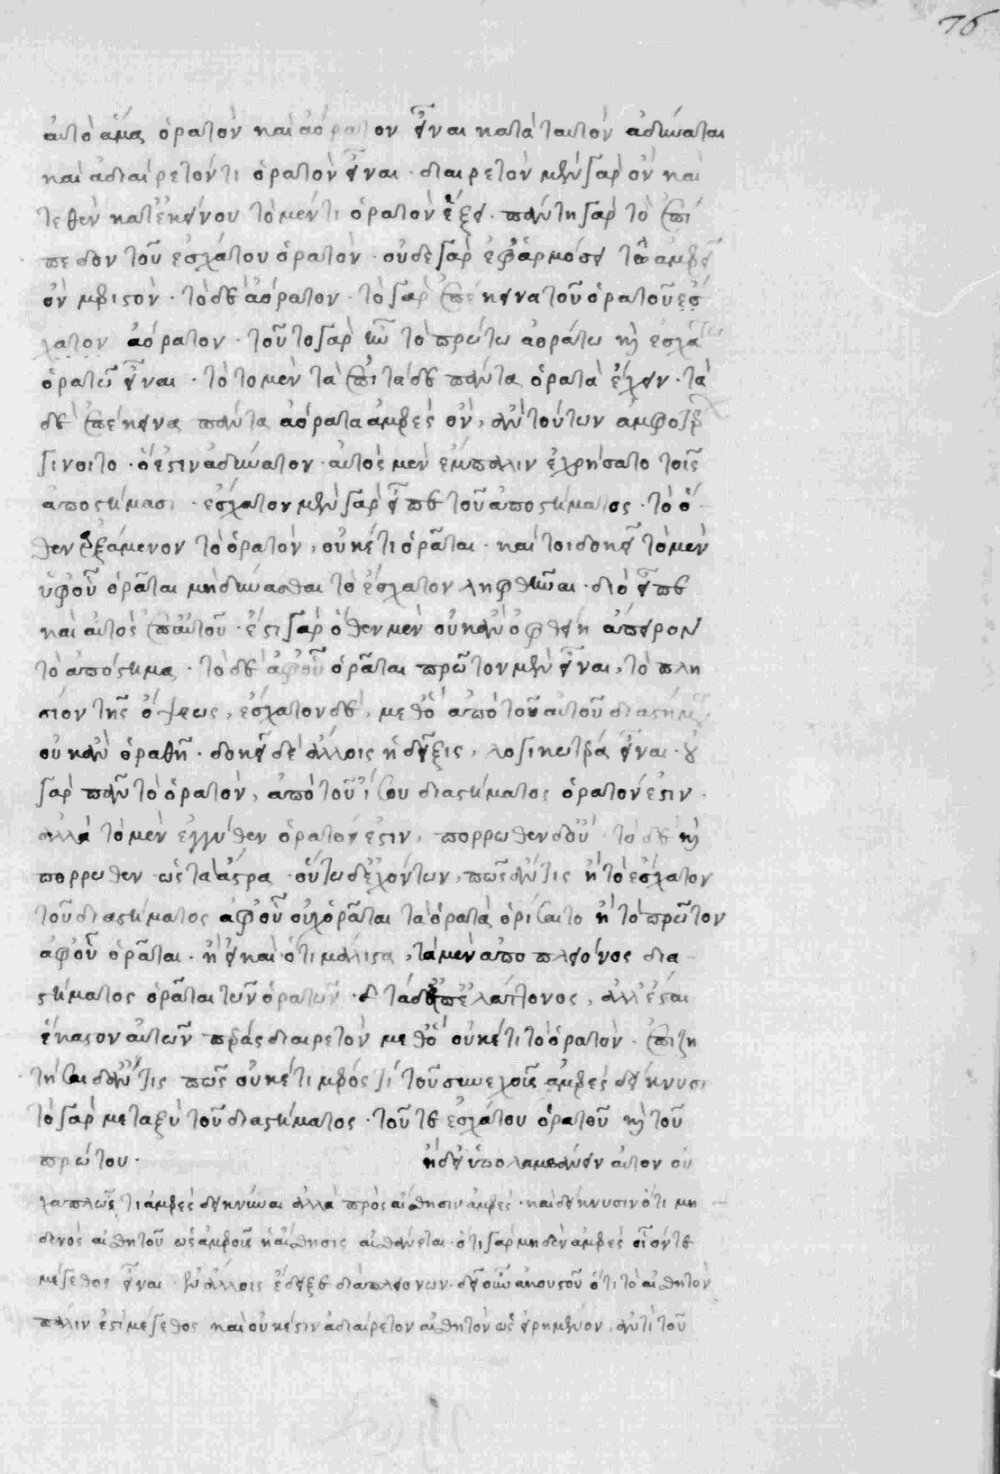 76
αὐτὸ ἅμα ὁρατὸν καὶ ἀόρατον εἶναι κατὰ ταυτὸν ἀδύναται
καὶ ἀδιαίρετόν τι ὁρατὸν εἶναι · διαιρετὸν μὲν γὰρ ὂν καὶ
τεθὲν κατ' ἐκείνου τὸ μέν τι ὁρατὸν ἕξει · πάντη γὰρ τὸ ἐπί
πεδον τοῦ ἐσχάτου ὁρατὸν · οὐδὲ γὰρ ἐφαρμόσει τῶ ἀμερεῖ
ὂν μεριστὸν · τὸ δὲ ἀόρατον · τὸ γὰρ ἐπέκεινα τοῦ ὁρατοῦ ἐσ
χάτου ἀόρατον · τοῦτο γὰρ ἦν τὸ πρώτω ἀοράτω καὶ ἐσχάτω
ὁρατῶ εἶναι · τὸ τὸ μὲν τὰ ἐπὶ τάδε πάντα ὁρατὰ ἔχειν · τὰ
δὲ ἐπέκεινα πάντα ἀόρατα ἀμερὲς ὂν, ἀντὶ τούτων ἀμφοτερ
γίνοιτο · ὅ ἐστιν ἀδύνατον · αὐτὸς μὲν ἔμπαλιν ἐχρήσατο τοῖς
ἀποστήμασι · ἔσχατον μὲν γὰρ εἶπε τοῦ ἀποστήματος · τὸ ὅ
θεν ἀρξάμενον τὸ ὁρατὸν, οὐκέτι ὁρᾶται · καί τοι δοκεῖ τὸ μὲν
ὑφ' οὗ ὁρᾶται μὴ δύνασθαι τὸ ἔσχατον ληφθῆναι · διὸ εἶπε
καὶ αὐτὸς ἐπ' αὐτοῦ · ἔστι γὰρ ὅθεν μὲν οὐκ ἂν ὀφθείη ἄπειρον
τὸ ἀπόστημα · τὸ δὲ ἀφ' οὗ ὁρᾶται πρῶτον μὲν εἶναι, τὸ πλη
σίον τῆς ὄψεως, ἔσχατον δὲ, μεθ' ὃ ἀπὸ τοῦ αὐτοῦ διαστήμ
οὐκ ἂν ὁραθῆ · δοκεῖ δὲ ἄλλοις ἡ δεῖξις, λογικωτέρα εἶναι · οὐ
γὰρ πᾶν τὸ ὁρατὸν, ἀπὸ τοῦ ἴσου διαστήματος ὁρατόν ἐστιν ·
ἀλλὰ τὸ μὲν ἐγγύθεν ὁρατόν ἐστιν, πόρρωθεν δ' οὔ · τὸ δὲ καὶ
πόρρωθεν ὡς τὰ ἄστρα · οὕτω δ' ἐχόντων, πῶς ἄν τις ἢ τὸ ἔσχατον
τοῦ διαστήματος ἀφ' οὗ οὐχ ὁρᾶται τὰ ὁρατὰ ὁρίσαιτο ἢ τὸ πρῶτον
ἀφ' οὗ ὁρᾶται · ἢ εἰ καὶ ὅτι μάλιστα, τὰ μὲν ἀπὸ πλείονος δια
στήματος ὁρᾶται τῶν ὁρατῶν · τὰ δὲ ἀπ' ἐλάττονος, ἀλλ' ἔσται
ἕκαστον αὐτῶν πέρας διαιρετὸν μεθ' ὃ οὐκέτι τὸ ὁρατὸν · ἐπιζη
τήσαι δ' ἄν τις πῶς οὐκέτι μέρος τί τοῦ συνεχοῦς ἀμερὲς δείκνυσι
τὸ γὰρ μεταξὺ τοῦ διαστήματος · τοῦ τε ἐσχάτου ὁρατοῦ καὶ τοῦ
πρώτου · ἢ δεῖ ὑπολαμβάνειν αὐτὸν οὐ
χ ἁπλῶς τι ἀμερὲς δεικνύναι ἀλλὰ πρὸς αἴσθησιν ἀμερὲς · καὶ δείκνυσιν ὅτι μη
δενὸς αἰσθητοῦ ὡς ἀμεροῦς ἡ αἴσθησις αἰσθάνεται · ὅτι γὰρ μηδὲν ἀμερὲς οἷόν τε
μέγεθος εἶναι · ἐν ἄλλοις ἔδειξε διὰ πλειόνων · δεῖ οὖν ἀκούειν ὅτι τὸ αἰσθητὸν
πάλιν ἐστὶ μέγεθος καὶ οὐκ ἔστιν ἀδιαίρετον αἰσθητὸν ὡς εἰρημένον, ἀντὶ τοῦ